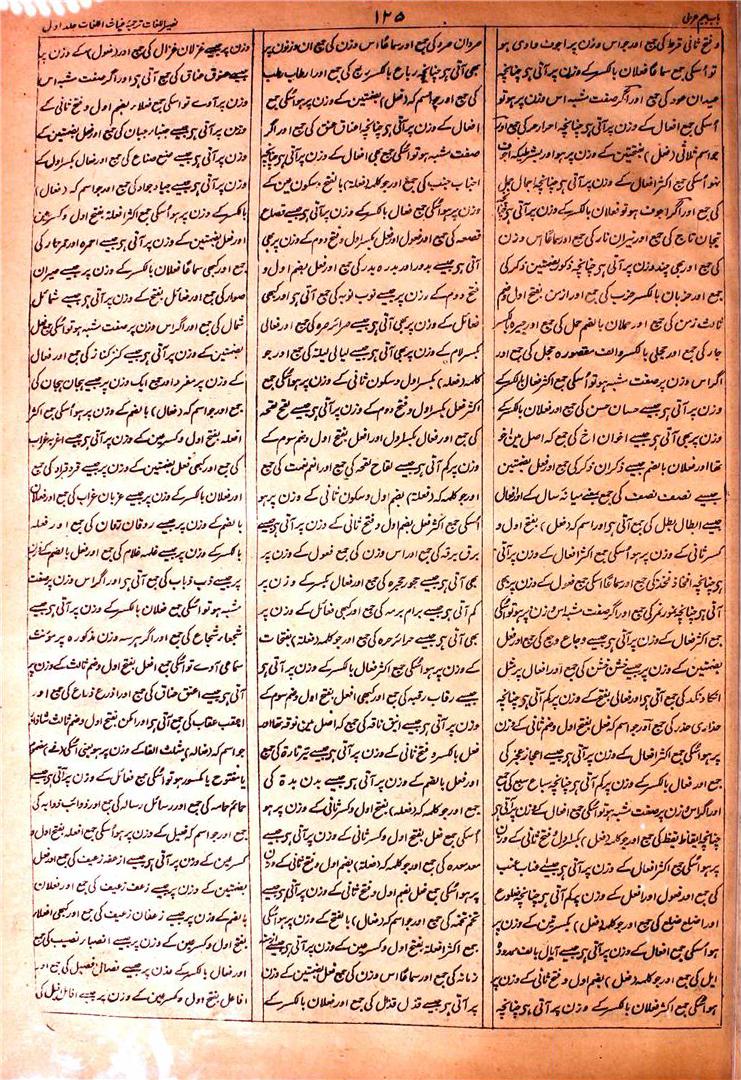 باب جیم عربی
۱۲۵
نصیر اللغات ترجمۂ غیاث اللغات جلد اول
و فتح ثانی قرط کی جمع اور جو اس وزن پر اجوف واوی ہو
تو اسکی جمع سماعًا فعلان بالکسر کے وزن پر آتی ہی چنانچہ
عیدان عود کی جمع اور اگر صفت شبہ اس وزن پر ہو تو
اُسکی جمع افعال کے وزن پر آتی ہی چنانچہ احرار حر کی جمع اور
جو اسم ثلاثی (فعل) بفتحتین کے وزن پر ہو اور بشرطیکہ اجوف
نہو اُسکی جمع اکثر افعال کے وزن پر آتی ہی چنانچہ اجمال جمل
کی جمع اور اگر اجوف ہو تو فعلان بالکسر کے وزن پر آتی ہی
تیجان تاج کی جمع اور نیران نار کی جمع اور سماعًا اس وزن
کی جمع اور بھی چند وزن پر آتی ہی چنانچہ ذکور بضمتین ذکر کی
جمع اور خربان بالکسر خرب کی جمع اور ازمن بفتح اول وضم
ثالث زمن کی جمع اور حملان بالضم حمل کی جمع اور جیرہ بالکسر
جار کی جمع اور حجلی بالکسر والف مقصورہ حجل کی جمع اور
اگر اس وزن پر صفت شبہ ہو تو اُسکی جمع اکثر فعال بالکسر کے
وزن پر آتی ہی جیسے حسان حسن کی جمع اور فعلان بالکسر کے
وزن پر بھی آتی ہی جیسے اخوان اخ کی جمع کہ اصل مین اخو
تھا اور فعلان بالضم جیسے ذکران ذکر کی جمع اور فعل بضمتین
جیسے نصف نصف کی جمع بمعنے میانہ سال کے اور افعال
جیسے ابطال بطل کی جمع آتی ہی اور اسم کہ (فعل) بفتح اول و
کسر ثانی کے وزن پر ہو اُسکی جمع اکثر افعال کے وزن پر آتی
ہی چنانچہ افخاذ فخذ کی جمع اور سماعًا اسکی جمع فعول کے وزن پر بھی
آتی ہی چنانچہ نمور نمر کی جمع اور اگر صفت شبہ اس وزن پر ہو تو اسکی
جمع اکثر فعال کے وزن پر آتی ہی جیسے وجاع وجع کی جمع اور فعل
بضمتین کے وزن پر جیسے خشن خشن کی جمع اور افعال پر مثل
انکاد نکد کی جمع آتی ہی اور فعالی بالفتح کے وزن پر کم آتی ہی چنانچہ
حذاری حذر کی جمع اور جو اسم کہ فعل بفتح اول وضم ثانی کے وزن
پر ہو اُسکی جمع اکثر افعال کے وزن پر آتی ہی جیسے اعجاز عجز کی
جمع اور فعال بالکسر کے وزن پر کم آتی ہی چنانچہ سباع سبع کی جمع
اور اگر اس وزن پر صفت شبہ ہو تو اُسکی جمع افعال کے وزن پر آتی ہی
چنانچہ ایقاظ یقظ کی جمع اور جو کلمہ (فعل) بکسر اول و فتح ثانی کے وزن
پر ہو اُسکی جمع اکثر افعال کے وزن پر آتی ہی جیسے اعناب عنب
کی جمع اور فعول اور افعل کے وزن پر کم آتی ہی چنانچہ ضلوع
اور اضلع ضلع کی جمع اور جو کلمہ (فعل) بکسرتین کے وزن پر
ہو اُسکی جمع افعال کے وزن پر آتی ہی جیسے آبال بالف ممدودہ
ابل کی جمع اور جو کلمہ (فعل) بضم اول و فتح ثانی کے وزن پر
ہو اُسکی جمع اکثر فعلان بالکسر کے وزن پر آتی ہی چنانچہ
صردان صرد کی جمع اور سماعًا اس وزن کی جمع ان وزنون پر
بھی آتی ہی چنانچہ رباع بالکسر ربع کی جمع اور ارطاب رطب
کی جمع اور جو اسم کہ (فعل) بضمتین کے وزن پر ہو اُسکی جمع
افعال کے وزن پر آتی ہی چنانچہ اعناق عنق کی جمع اور اگر
صفت شبہ ہو تو اُسکی جمع بھی افعال کے وزن پر آتی ہی چنانچہ
اجناب جنب کی جمع اور جو کلمہ (فعلہ) بالفتح و سکون عین کے
وزن پر ہو اُسکی جمع فعال بالکسر کے وزن پر آتی ہی جیسے قصاع
قصعہ کی جمع اور فعول اور فعل بکسر اول و فتح دوم کے وزن پر بھی
آتی ہی جیسے بدور اور بدرہ بدر کی جمع اور فعل بضم اول و
فتح دوم کے وزن پر جیسے نوب نوبہ کی جمع آتی ہی اور کبھی
فعائل کے وزن پر بھی آتی ہی جیسے حرائر حرہ کی جمع اور فعالی
بکسر لام کے وزن پر بھی آتی ہی جیسے لیالی لیلہ کی جمع اور جو
کلمہ (فعلہ) بکسر اول و سکون ثانی کے وزن پر ہو اُسکی جمع
اکثر فعل بکسر اول و فتح دوم کے وزن پر آتی ہی جیسے لقح لقحہ
کی جمع اور فعال بکسر اول اور افعل بفتح اول وضم سوم کے
وزن پر کم آتی ہی جیسے لقاح لقحہ کی جمع اور انعم نعمت کی جمع
اور جو کلمہ کہ (فعلہ) بضم اول و سکون ثانی کے وزن پر ہو
اُسکی جمع اکثر فعل بضم اول و فتح ثانی کے وزن پر آتی ہی جیسے
برق برقہ کی جمع اور اس وزن کی جمع فعول کے وزن پر
بھی آتی ہی جیسے حجور حجرہ کی جمع اور فعال بکسر کے وزن پر
کم آتی ہی جیسے برام برمہ کی جمع اور کبھی فعائل کے وزن پر
بھی آتی ہی جیسے حرائر حرہ کی جمع اور جو کلمہ (فعلہ) بفتحات
کے وزن پر ہو اُسکی جمع اکثر فعال بالکسر کے وزن پر آتی ہی
جیسے رقاب رقبہ کی جمع اور کبھی افعل بفتح اول وضم سوم کے
وزن پر آتی ہی جیسے انیق ناقہ کی جمع کہ اصل مین نوقہ تھا اور
فعل بالکسر و فتح ثانی کے وزن پر آتی ہی جیسے تیر تارۃ کی جمع
اور فعل بالضم کے وزن پر آتی ہی جیسے بدن بدنۃ کی
جمع اور جو کلمہ کہ (فعلہ) بفتح اول وکسر ثانی کے وزن پر ہو
اُسکی جمع فعل بفتح اول وکسر ثانی کے وزن پر آتی ہی جیسے
معد معدہ کی جمع اور جو کلمہ کہ (فعلہ) بضم اول و فتح ثانی کے وزن
پر ہو اُسکی جمع فعل بضم اول و فتح ثانی کے وزن پر آتی ہی جیسے
تخم تخمہ کی جمع اور جو اسم کہ (فعال) بالفتح کے وزن پر ہو اُسکی
جمع اکثر افعلہ بفتح اول وکسر عین کے وزن پر آتی ہی جیسے ازمنہ
زمانہ کی جمع اور سماعًا اس وزن کی جمع فعل بضمتین کے وزن
پر آتی ہی جیسے قذل قذال کی جمع اور فعلان بالکسر کے
وزن پر جیسے غزلان غزال کی جمع اور (فعول) کے وزن پر
جیسے عنوق عناق کی جمع آتی ہی اور اگر صفت شبہ اس
وزن پر آوے تو اُسکی جمع فعلاء بضم اول و فتح ثانی کے
وزن پر آتی ہی جیسے جبناء جبان کی جمع اور فعل بضمتین کے
وزن پر آتی ہی جیسے صنع صناع کی جمع اور فعال بکسر اول کے
وزن پر آتی ہی جیسے جیاد جواد کی جمع اور جو اسم کہ (فعال)
بالکسر کے وزن پر ہو اُسکی جمع اکثر افعلہ بفتح اول وکسر عین
اور فعل بضمتین کے وزن پر آتی ہی جیسے احمرہ اور حمر حمار کی
جمع اور کبھی سماعًا فعلان بالکسر کے وزن پر جیسے صیران
صوار کی جمع اور فعائل بفتح کے وزن پر آتی ہی جیسے شمائل
شمال کی جمع اور اگر اس وزن پر صفت شبہ ہو تو اُسکی جمع فعل
بضمتین کے وزن پر آتی ہی جیسے کنز کناز کی جمع اور فعال
کے وزن پر مفرد اور جمع ایک وزن پر جیسے ہجان ہجان کی
جمع اور جو اسم کہ (فعال) بالضم کے وزن پر ہو اُسکی جمع اکثر
افعلہ بفتح اول وکسر عین کے وزن پر آتی ہی جیسے اغربہ غراب
کی جمع اور کبھی فعل بضمتین کے وزن پر جیسے قرد قراد کی جمع
اور فعلان بالکسر کے وزن پر جیسے غربان غراب کی جمع اور فعلان
بالضم کے وزن پر جیسے زقان زقاق کی جمع اور فعلہ
بالکسر کے وزن پر جیسے غلمہ غلام کی جمع اور فعل بالضم کے وزن
پر جیسے ذب ذباب کی جمع آتی ہی اور اگر اس وزن پر صفت
شبہ ہو تو اُسکی جمع فعلان بالکسر کے وزن پر آتی ہی جیسے
شجعاء شجاع کی جمع اور اگر ہر سہ وزن مذکورہ پر مؤنث
سماعی آوے تو اُسکی جمع افعل بفتح اول وضم ثالث کے وزن پر
آتی ہی جیسے اعنق عناق کی جمع اور اذرع ذراع کی جمع اور
اعقب عقاب کی جمع آتی ہی اور امکن بفتح اول وضم ثالث شاذ ہی اور
جو اسم کہ (فعالہ) مثلث الفا کے وزن پر ہو یعنی اُسکی (فے) مضموم
یا مفتوح یا مکسور ہو تو اُسکی جمع فعائل کے وزن پر آتی ہی جیسے
حمائم حمامہ کی جمع اور رسائل رسالہ کی جمع اور ذوائب ذوابہ کی
جمع اور جو اسم کہ فعیل کے وزن پر ہو اُسکی جمع افعلہ بفتح اول و
کسر عین کے وزن پر آتی ہی جیسے ارغفہ رغیف کی جمع اور فعل
بضمتین کے وزن پر جیسے رغف رغیف کی جمع اور فعلان
بالضم کے وزن پر جیسے رغفان رغیف کی جمع اور کبھی افعلاء
بفتح اول وکسر عین کے وزن پر آتی ہی جیسے انصباء نصیب کی جمع
اور فعال بالکسر کے وزن پر جیسے فصال فصیل کی جمع اور
افاعل بفتح اول وکسر عین کے وزن پر جیسے افائل افیل کی